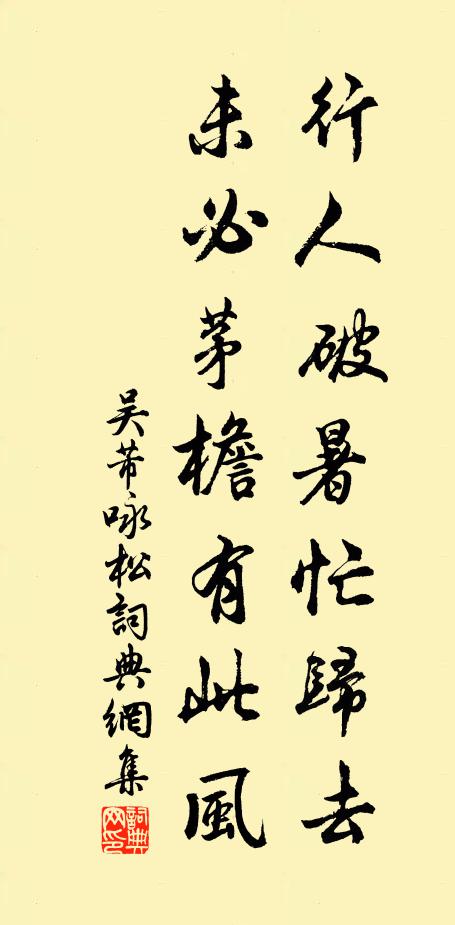 行人破暑忙歸去
未必茅檐有此風
吳芾咏松詞典網集
詞典網印